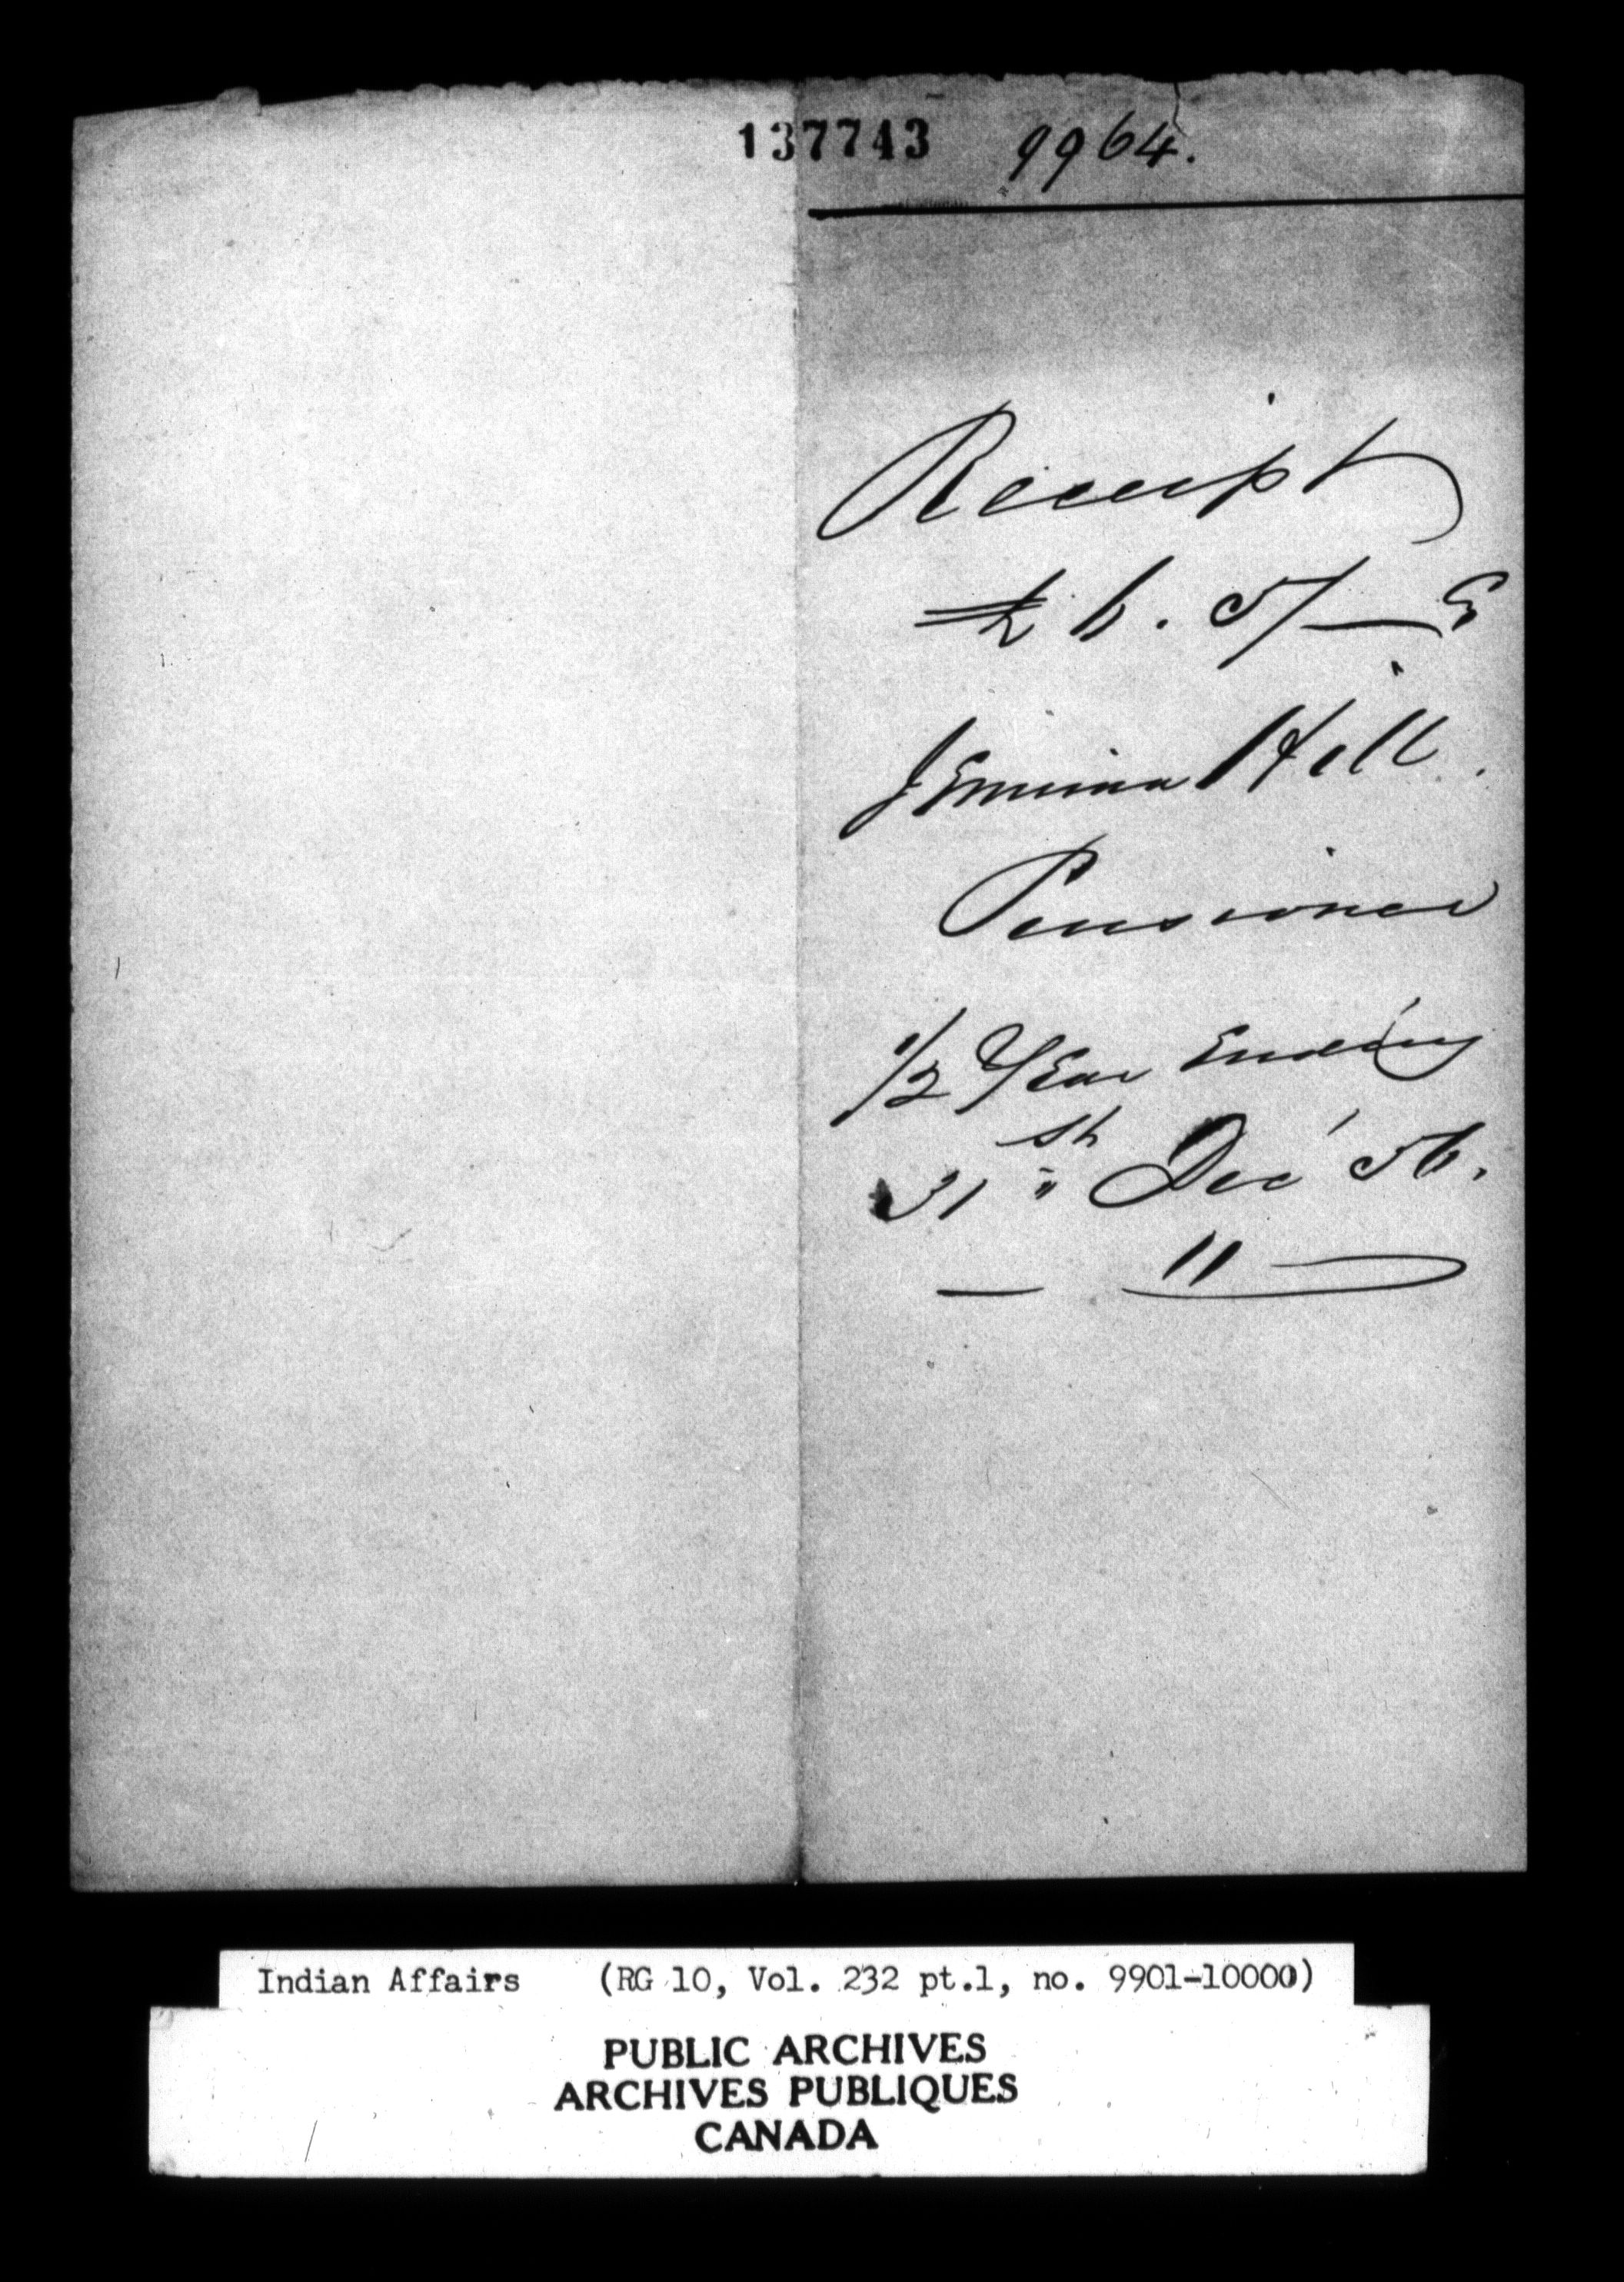 137743 9964.
Receipt
£ 6. 5/—
Jemima Hill.
Pensioner
1/2 Year Ending
31st Dec' 56.
— 11 —
Indian Affairs (RG 10, Vol. 232 pt.1, no. 9901-10000)
PUBLIC ARCHIVES
ARCHIVES PUBLIQUES
CANADA